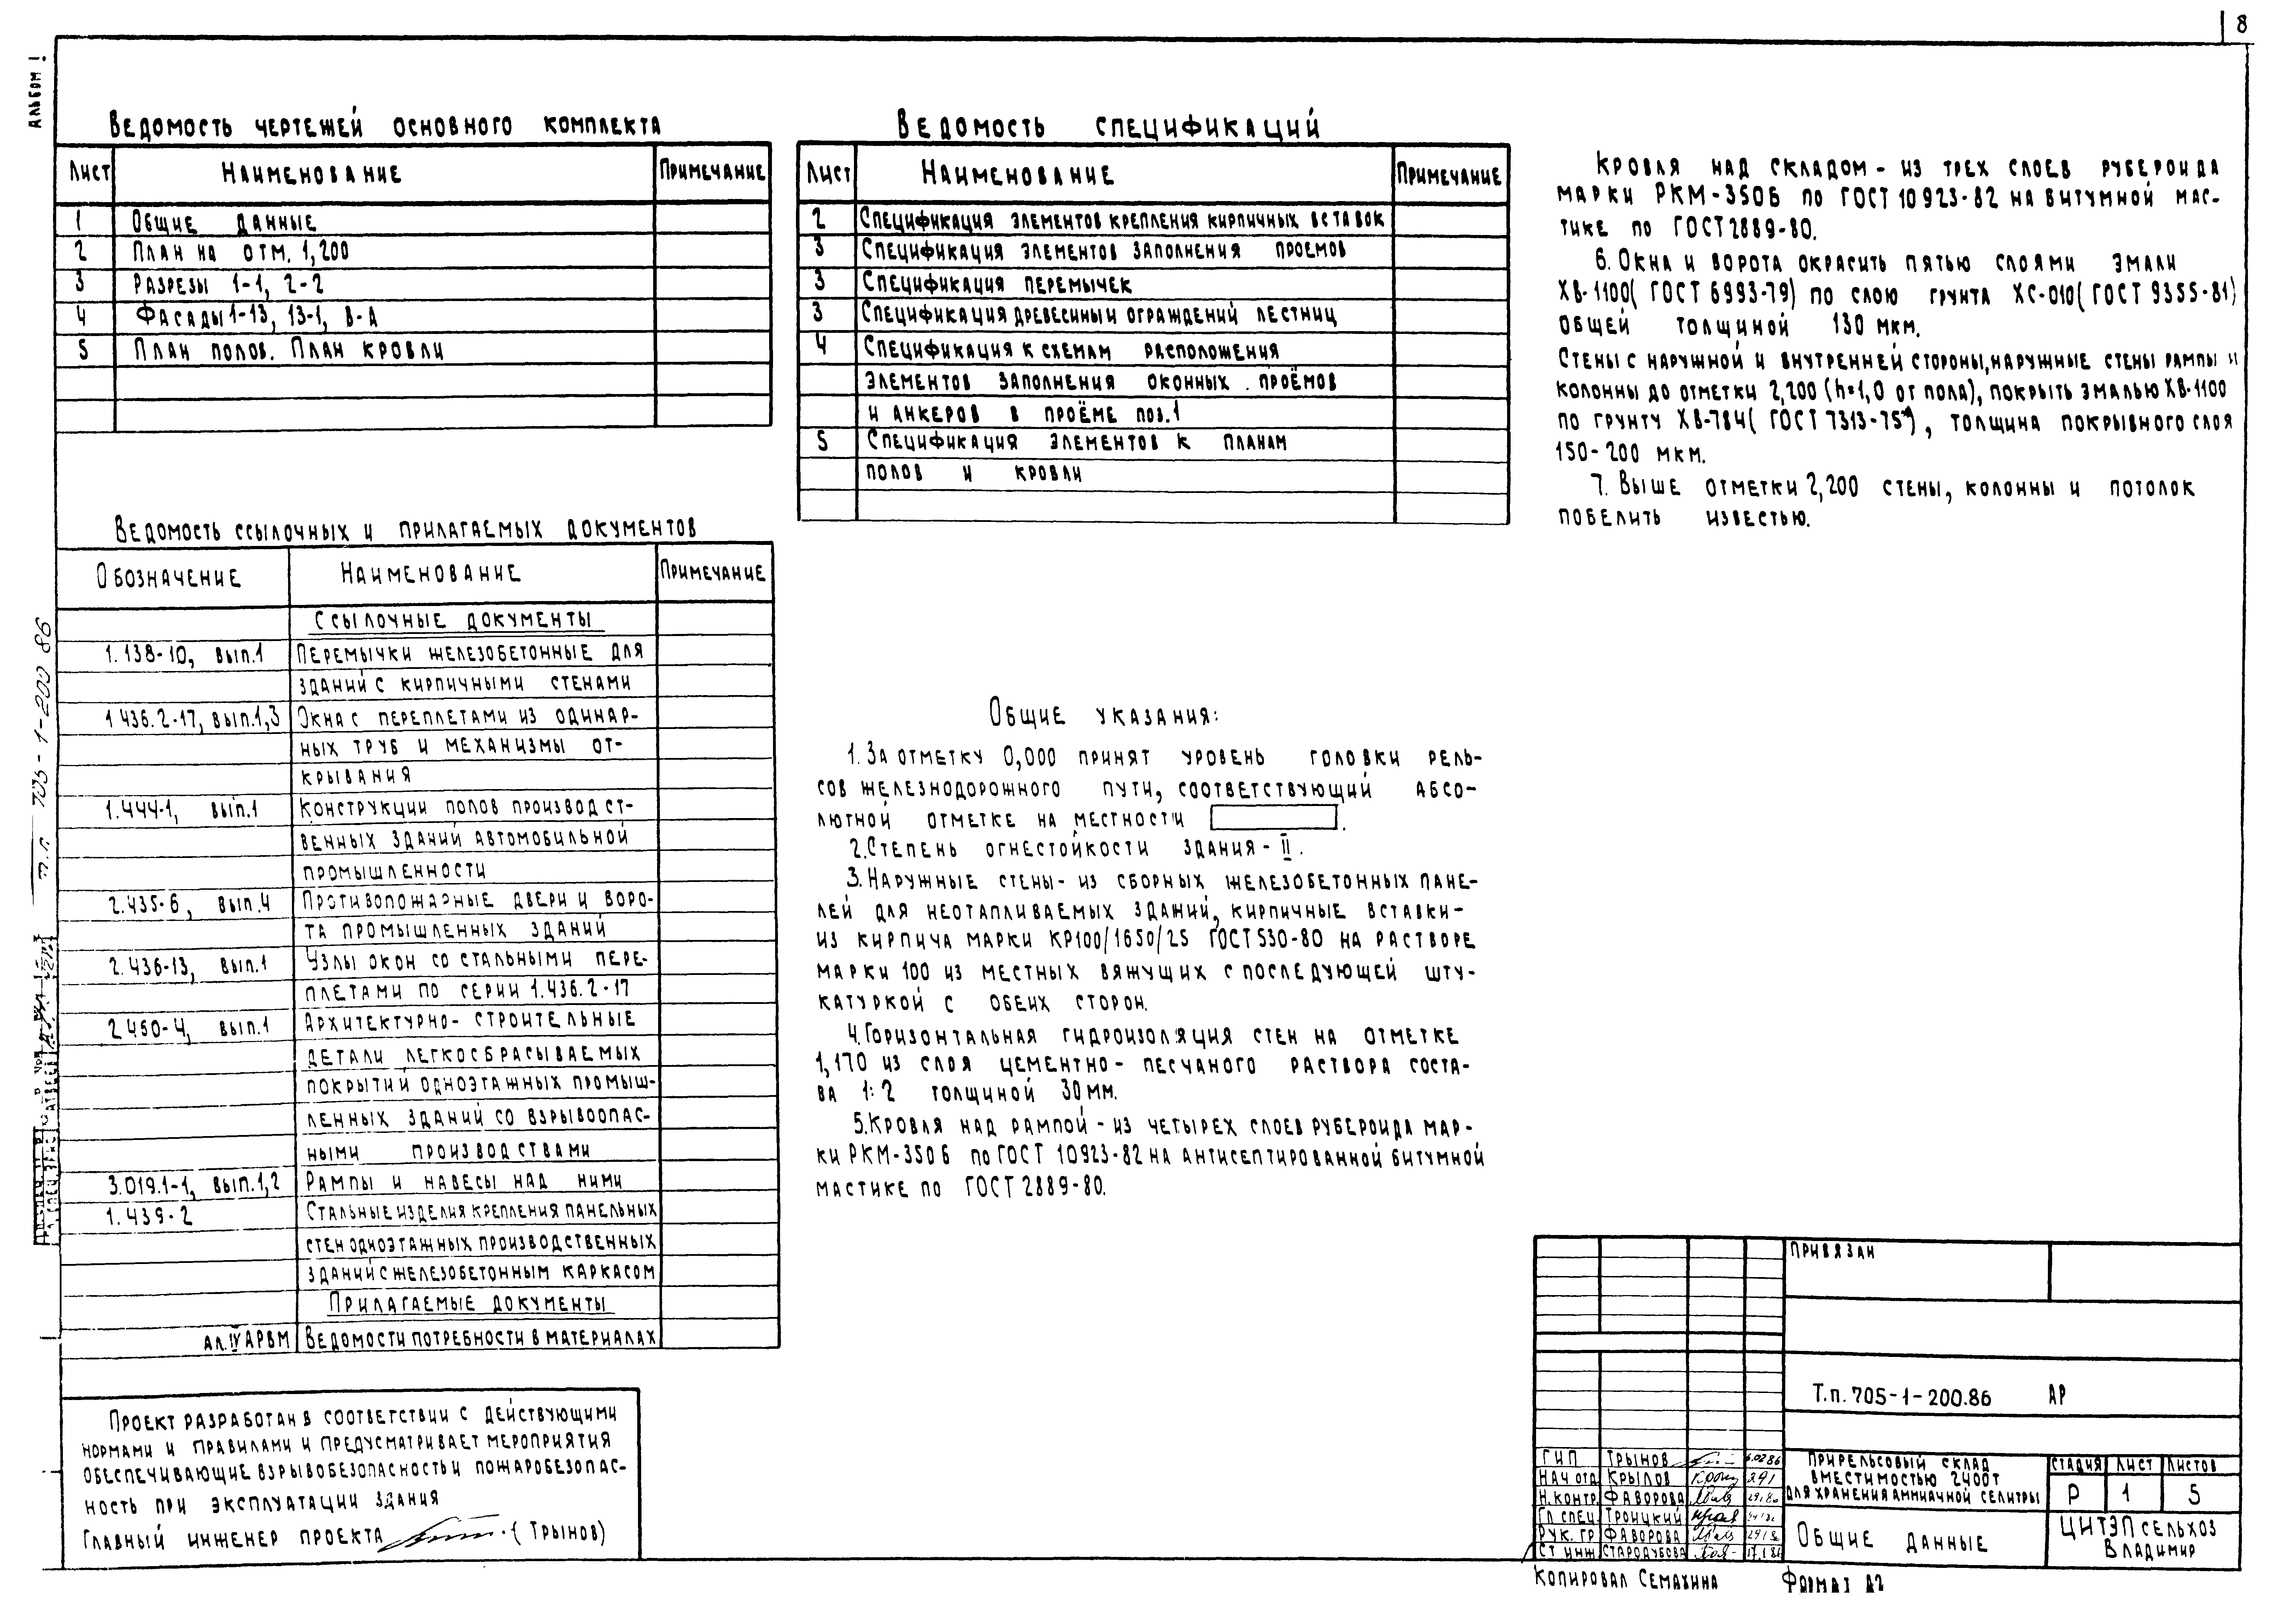 8
Альбом I
Ведомость чертежей основного комплекта
Лист Наименование Примечание
1 Общие данные
2 План на отм. 1,200
3 Разрезы 1-1, 2-2
4 Фасады 1-13, 13-1, В-А
5 План полов. План кровли
Ведомость ссылочных и прилагаемых документов
Обозначение Наименование Примечание
Ссылочные документы
1.138-10, вып.1 Перемычки железобетонные для
зданий с кирпичными стенами
1 436.2-17, вып.1,3 Окна с переплетами из одинар-
ных труб и механизмы от-
крывания
1.444-1, вып.1 Конструкции полов производст-
венных зданий автомобильной
промышленности
2.435-6, вып.4 Противопожарные двери и воро-
та промышленных зданий
2.436-13, вып.1 Узлы окон со стальными пере-
плетами по серии 1.436.2-17
2.460-4, вып.1 Архитектурно-строительные
детали легкосбрасываемых
покрытий одноэтажных промыш-
ленных зданий со взрывоопас-
ными производствами
3.019.1-1, вып.1,2 Рампы и навесы над ними
1.439-2 Стальные изделия крепления панельных
стен одноэтажных производственных
зданий с железобетонным каркасом
Прилагаемые документы
Ал.IV АРВМ Ведомости потребности в материалах
Проект разработан в соответствии с действующими
нормами и правилами и предусматривает мероприятия
обеспечивающие взрывобезопасность и пожаробезопас-
ность при эксплуатации здания
Главный инженер проекта (Трынов)
Ведомость спецификаций
Лист Наименование Примечание
2 Спецификация элементов крепления кирпичных вставок
3 Спецификация элементов заполнения проемов
3 Спецификация перемычек
3 Спецификация древесины и ограждений лестниц
4 Спецификация к схемам расположения
элементов заполнения оконных проёмов
и анкеров в проёме поз.1
5 Спецификация элементов к планам
полов и кровли
Общие указания:
1. За отметку 0,000 принят уровень головки рель-
сов железнодорожного пути, соответствующий абсо-
лютной отметке на местности .
2. Степень огнестойкости здания - II.
3. Наружные стены - из сборных железобетонных пане-
лей для неотапливаемых зданий, кирпичные вставки -
из кирпича марки КР100/1650/25 ГОСТ 530-80 на растворе
марки 100 из местных вяжущих с последующей шту-
катуркой с обеих сторон.
4. Горизонтальная гидроизоляция стен на отметке
1,170 из слоя цементно-песчаного раствора соста-
ва 1:2 толщиной 30 мм.
5. Кровля над рампой - из четырех слоев рубероида мар-
ки РКМ-350Б по ГОСТ 10923-82 на антисептированной битумной
мастике по ГОСТ 2889-80.
Кровля над складом - из трех слоев рубероида
марки РКМ-350Б по ГОСТ 10923-82 на битумной мас-
тике по ГОСТ 2889-80.
6. Окна и ворота окрасить пятью слоями эмали
ХВ-1100 (ГОСТ 6993-79) по слою грунта ХС-010 (ГОСТ 9355-81)
общей толщиной 130 мкм.
Стены с наружной и внутренней стороны, наружные стены рампы и
колонны до отметки 2,200 (h=1,0 от пола), покрыть эмалью ХВ-1100
по грунту ХВ-784 (ГОСТ 7313-75*), толщина покрывного слоя
150-200 мкм.
7. Выше отметки 2,200 стены, колонны и потолок
побелить известью.
Привязан
Т.п. 705-1-200.86 АР
ГИП Трынов 6.02.86
Нач отд Крылов 29.1
Н.контр. Фаворова 29.1.86
Гл спец. Троицкий
Рук. гр Фаворова
Ст инж Стародубова
Прирельсовый склад
вместимостью 2400т
для хранения аммиачной селитры
Стадия Лист Листов
Р 1 5
Общие данные
ЦИТЭПсельхоз
Владимир
Копировал Семахина Формат А2
т.п. 705-1-200 86